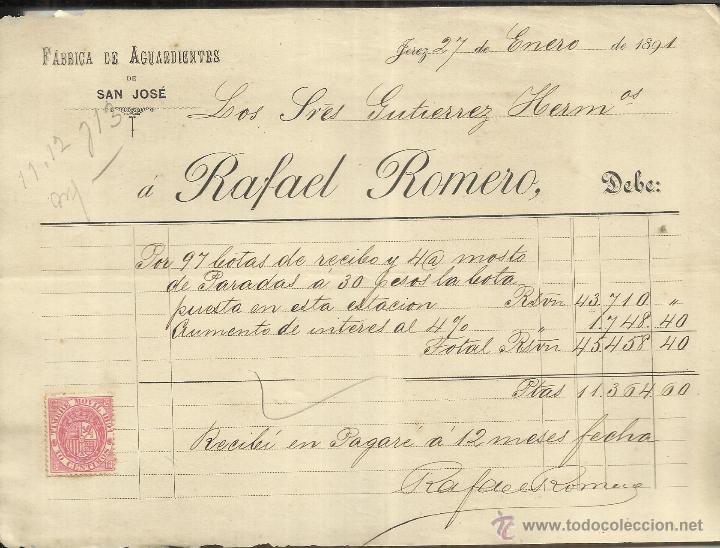 FÁBRICA DE AGUARDIENTES
DE
SAN JOSÉ
Jerez 27 de Enero de 1891
11.12 213
Los Sres Gutierrez Hermos
á Rafael Romero, Debe:
Por 97 botas de recibo y 4@ mosto
de Paradas á 30 pesos la bota
puesta en esta estacion Rsvn 43.710 "
Aumento de interes al 4% " 1.748. 40
Total Rsvn 45.458 40
Ptas 11.364 60
Recibí en Pagaré á 12 meses fecha
Rafael Romero
TIMBRE MOVIL 1891
10 CENTIMOS
www.todocoleccion.net